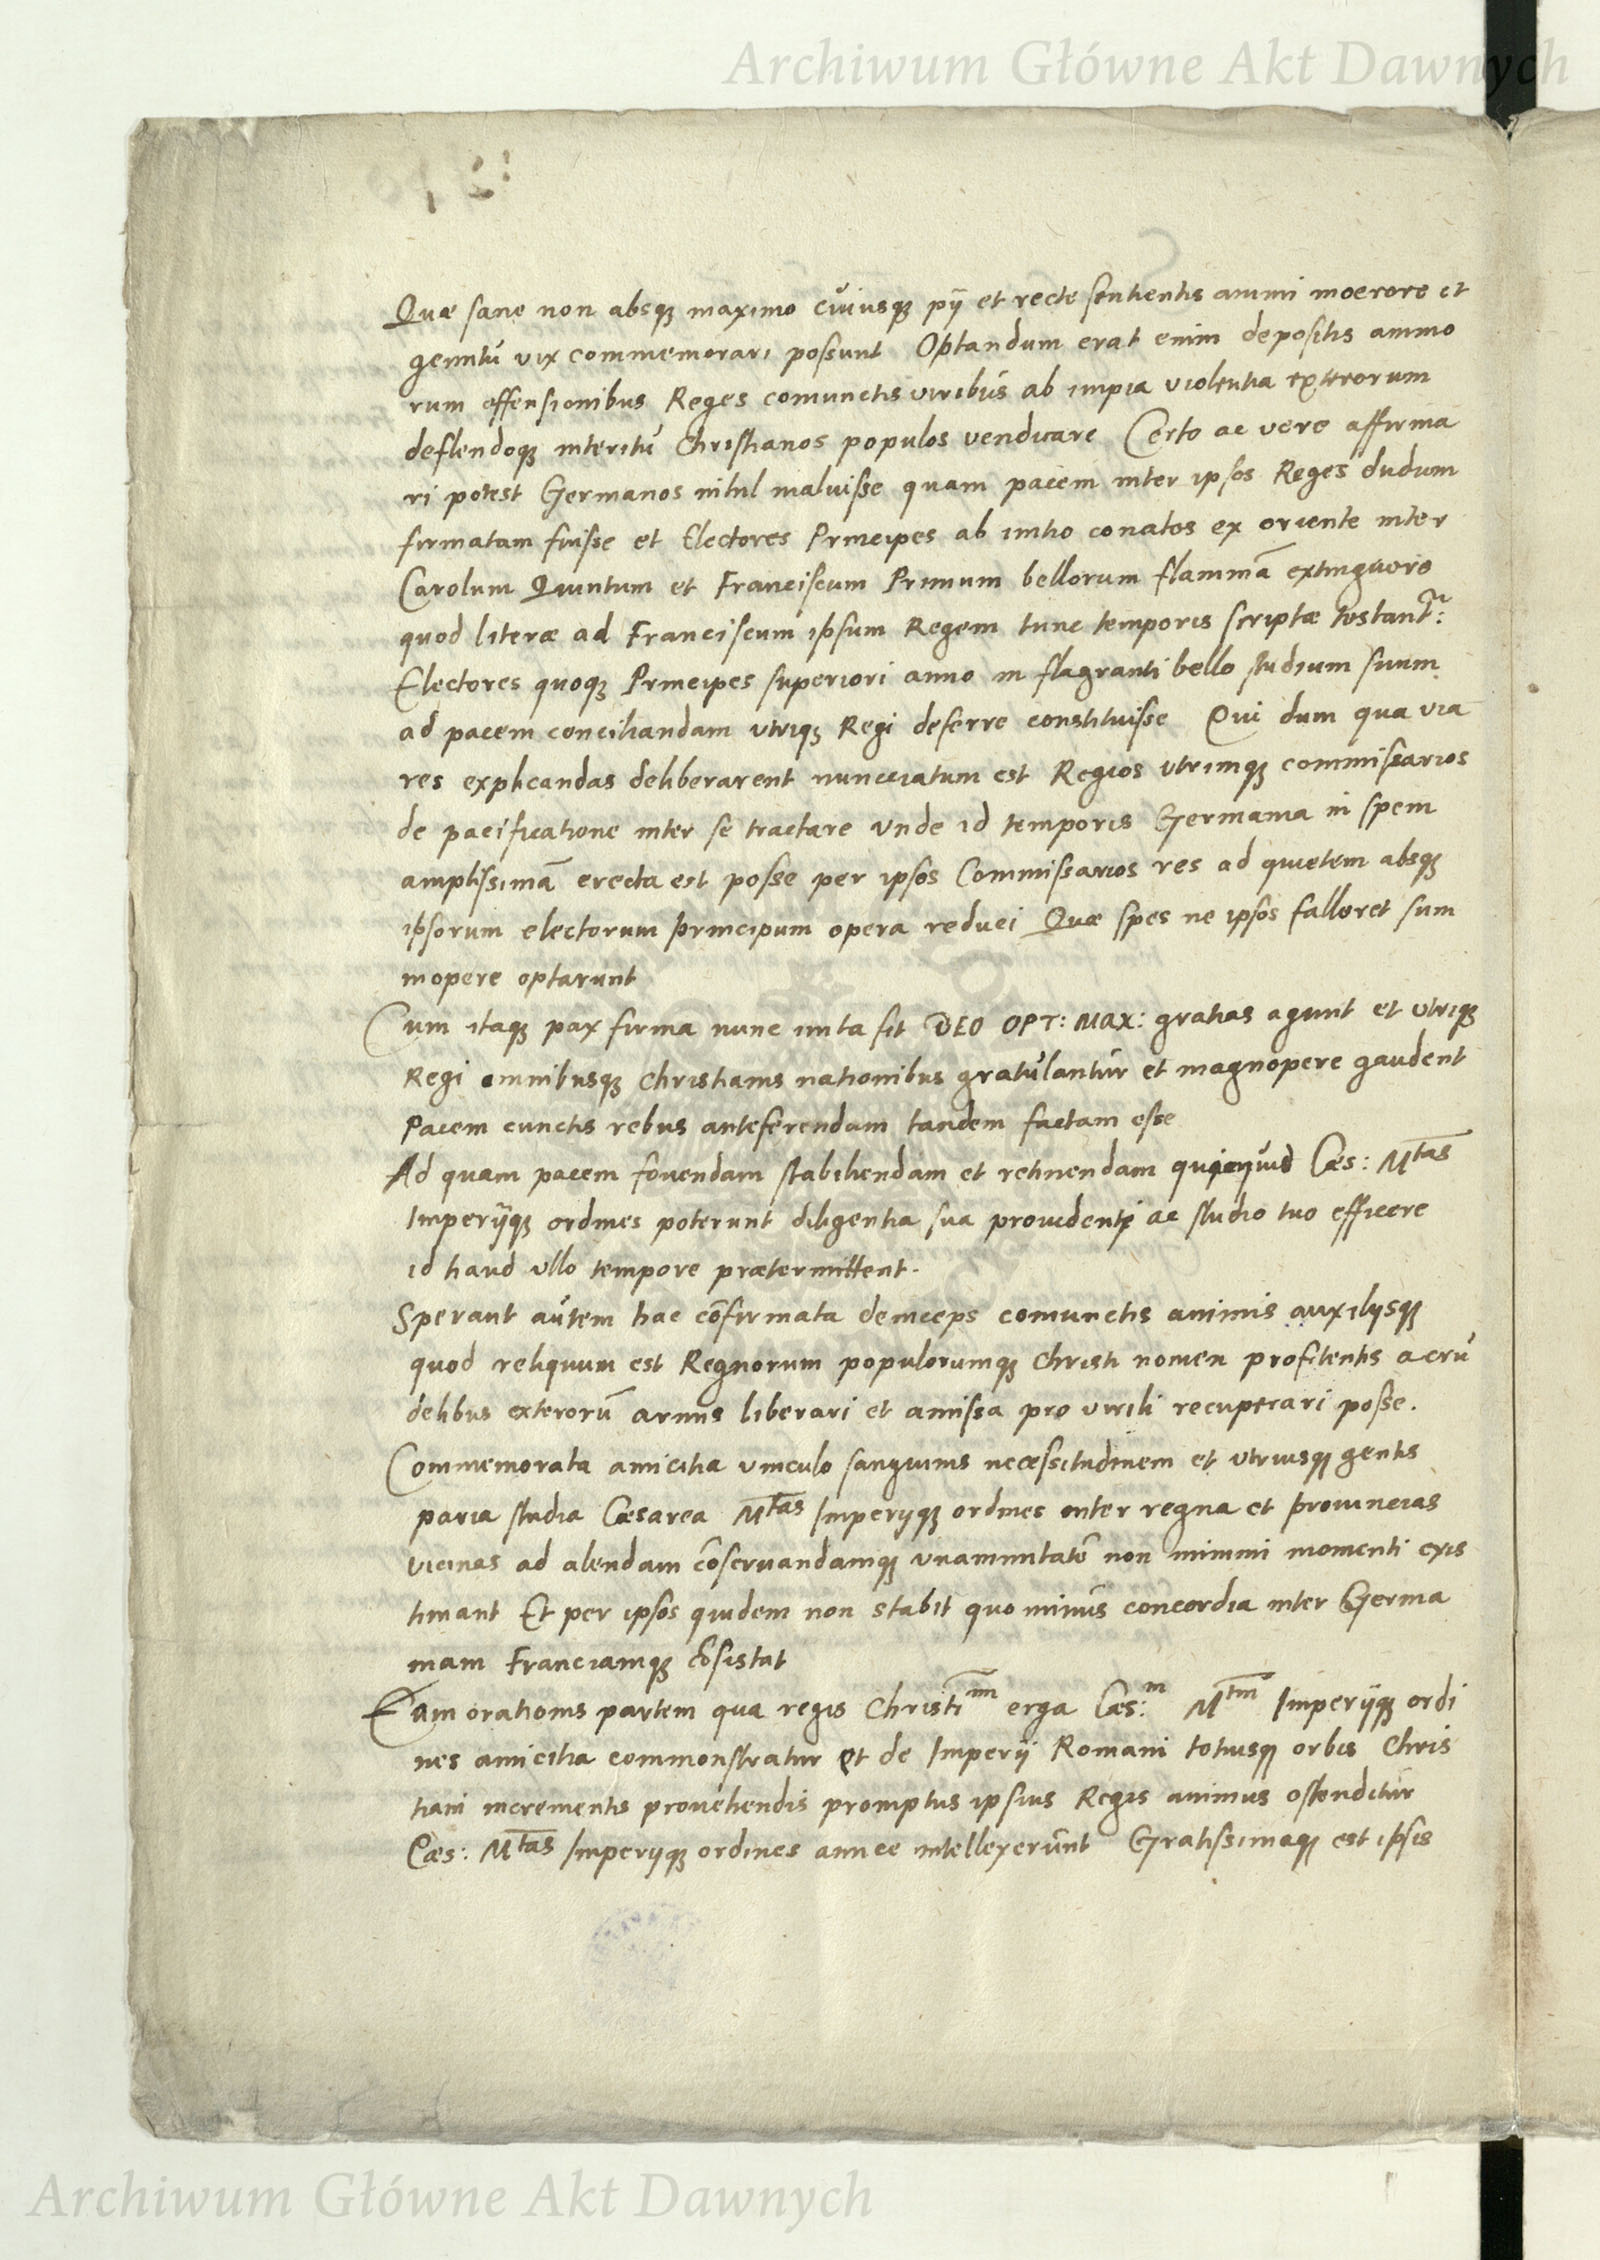 Archiwum Główne Akt Dawnych
Quæ sane non absqꝫ maximo cuiusqꝫ pij et recte sentientis animi moerore et
gemitu vix commemorari possunt Optandum erat enim depositis animo
rum offensionibus Reges coniunctis viribus ab impia violentia exterorum
deflendoqꝫ interitu Christianos populos vendicare Certo ac vere affirma
ri potest Germanos nihil maluisse quam pacem inter ipsos Reges dudum
firmatam fuisse et Electores Principes ab initio conatos ex oriente inter
Carolum Quintum et Franciscum Primum bellorum flammā extinguere
quod literæ ad Franciscum ipsum Regem tunc temporis scriptæ testantʳ:
Electores quoqꝫ Principes superiori anno in flagranti bello studium suum
ad pacem conciliandam utriqꝫ Regi deferre constituisse Qui dum qua via
res explicandas deliberarent nunciatum est Regios utrimqꝫ commissarios
de pacificatione inter se tractare Unde id temporis Germania in spem
amplissimā erecta est posse per ipsos Commissarios res ad quietem absqꝫ
ipsorum electorum principum opera reduci Quæ spes ne ipsos falleret sum
mopere optarunt
Cum itaqꝫ pax firma nunc inita sit DEO OPT: MAX: gratias agunt et utriqꝫ
Regi omnibusqꝫ christianis nationibus gratulantur et magnopere gaudent
Pacem cunctis rebus anteferendam tandem factam esse
Ad quam pacem fovendam stabiliendam et retinendam quicquid Cæs: Mᵗᵃˢ
Imperijqꝫ ordines poterunt diligentia sua providentę ac studio tuo efficere
id haud ullo tempore prætermittent.
Sperant autem hac cōfirmata deinceps coniunctis animis auxilijsqꝫ
quod reliquum est Regnorum populorumqꝫ Christi nomen profitentis a cru
delibus exterorū armis liberari et amissa pro virili recuperari posse.
Commemorata amicitia vinculo sanguinis necessitudinem et utriusqꝫ gentis
paria studia Cæsarea Mᵗᵃˢ Imperijqꝫ ordines inter regna et provincias
vicinas ad alendam cōservandamqꝫ unanimitatē non minimi momenti exis
timant Et per ipsos quidem non stabit quo minus concordia inter Germa
niam Franciamqꝫ cōsistat
Eam orationis partem qua regis Christiᵐⁱ erga Cæs:ᵐ Mᵗᵐ Imperijqꝫ ordi
nes amicitia commonstratur et de Imperij Romani totiusqꝫ orbis Chris
tiani incrementis provehendis promptus ipsius Regis animus ostenditur
Cæs: Mᵗᵃˢ Imperijqꝫ ordines amice intellexerunt Gratissimaqꝫ est ipsis
Archiwum Główne Akt Dawnych